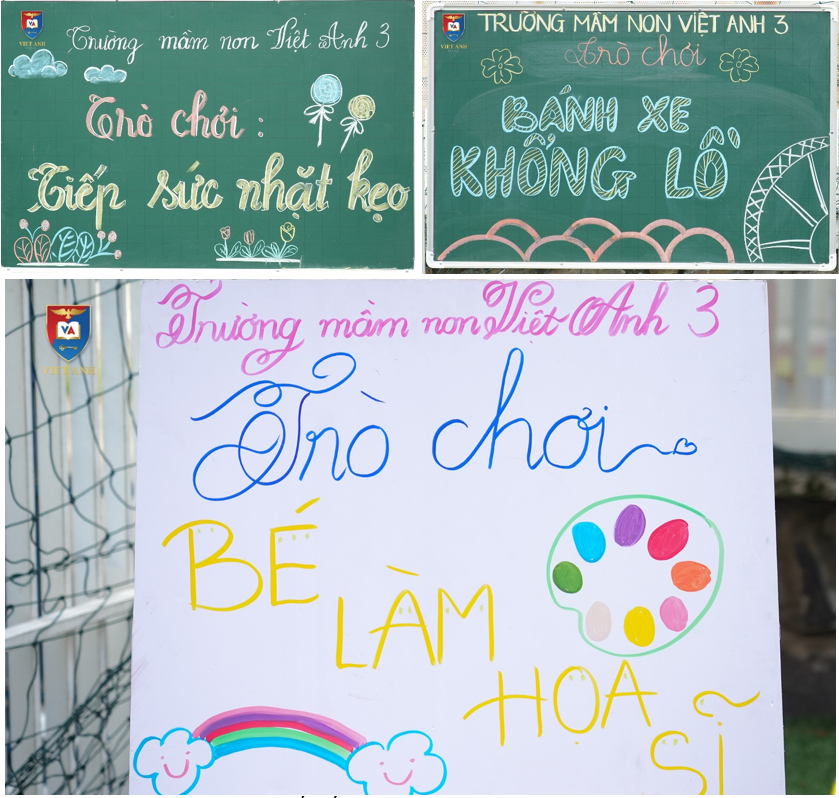 VIỆT ANH
Trường mầm non Việt Anh 3
Trò chơi :
Tiếp sức nhặt kẹo
VIỆT ANH
TRƯỜNG MẦM NON VIỆT ANH 3
Trò chơi
BÁNH XE
KHỔNG LỒ
VA
VIỆT ANH
Trường mầm non Việt Anh 3
Trò chơi
BÉ
LÀM
HỌA
SĨ